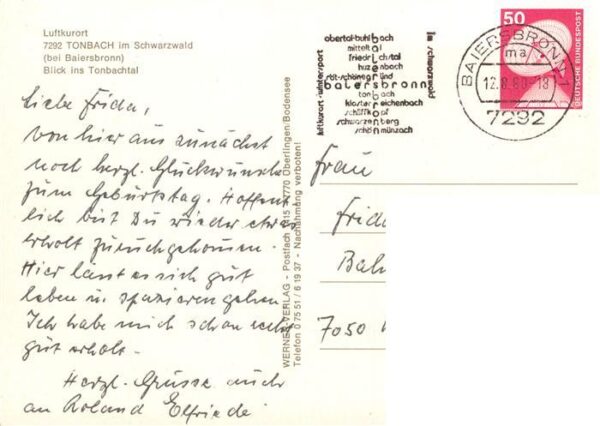 Luftkurort
7292 TONBACH im Schwarzwald
(bei Baiersbronn)
Blick ins Tonbachtal
Liebe Frida,
Von hier aus zunächst
noch herzl. Glückwunsch
zum Geburtstag. Hoffent
lich bist Du wieder etwas
erholt zurückgekommen.
Hier lässt es sich gut
leben u. spazierengehen.
Ich habe mich schon recht
gut erholt.
Herzl. Grüsse auch
an Roland Elfriede
WERNER VERLAG - Postfach 1415 7770 Überlingen/Bodensee
Telefon 0 75 51 / 6 19 37 - Nachahmung verboten!
luftkurort - wintersport
obertal-buhlbach
mitteltal
friedrichstal
huzenbach
röt-schönegründ
baiersbronn
tonbach
klosterreichenbach
schliffkopf
schwarzenberg
schönmünzach
im schwarzwald
BAIERSBRONN 1
ma
12.8.80-18
7292
50
DEUTSCHE BUNDESPOST
Frau
Frida
Bahn
7050